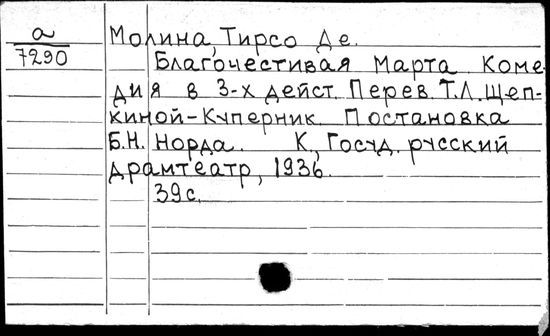 а
7290
Молина, Тирсо Де.
Благочестивая Марта Коме-
дия в 3-х дейст. Перев. Т.Л. Щеп-
киной-Куперник. Постановка
Б.Н. Норда. К., Госуд. русский
драмтеатр, 1936.
39 с.